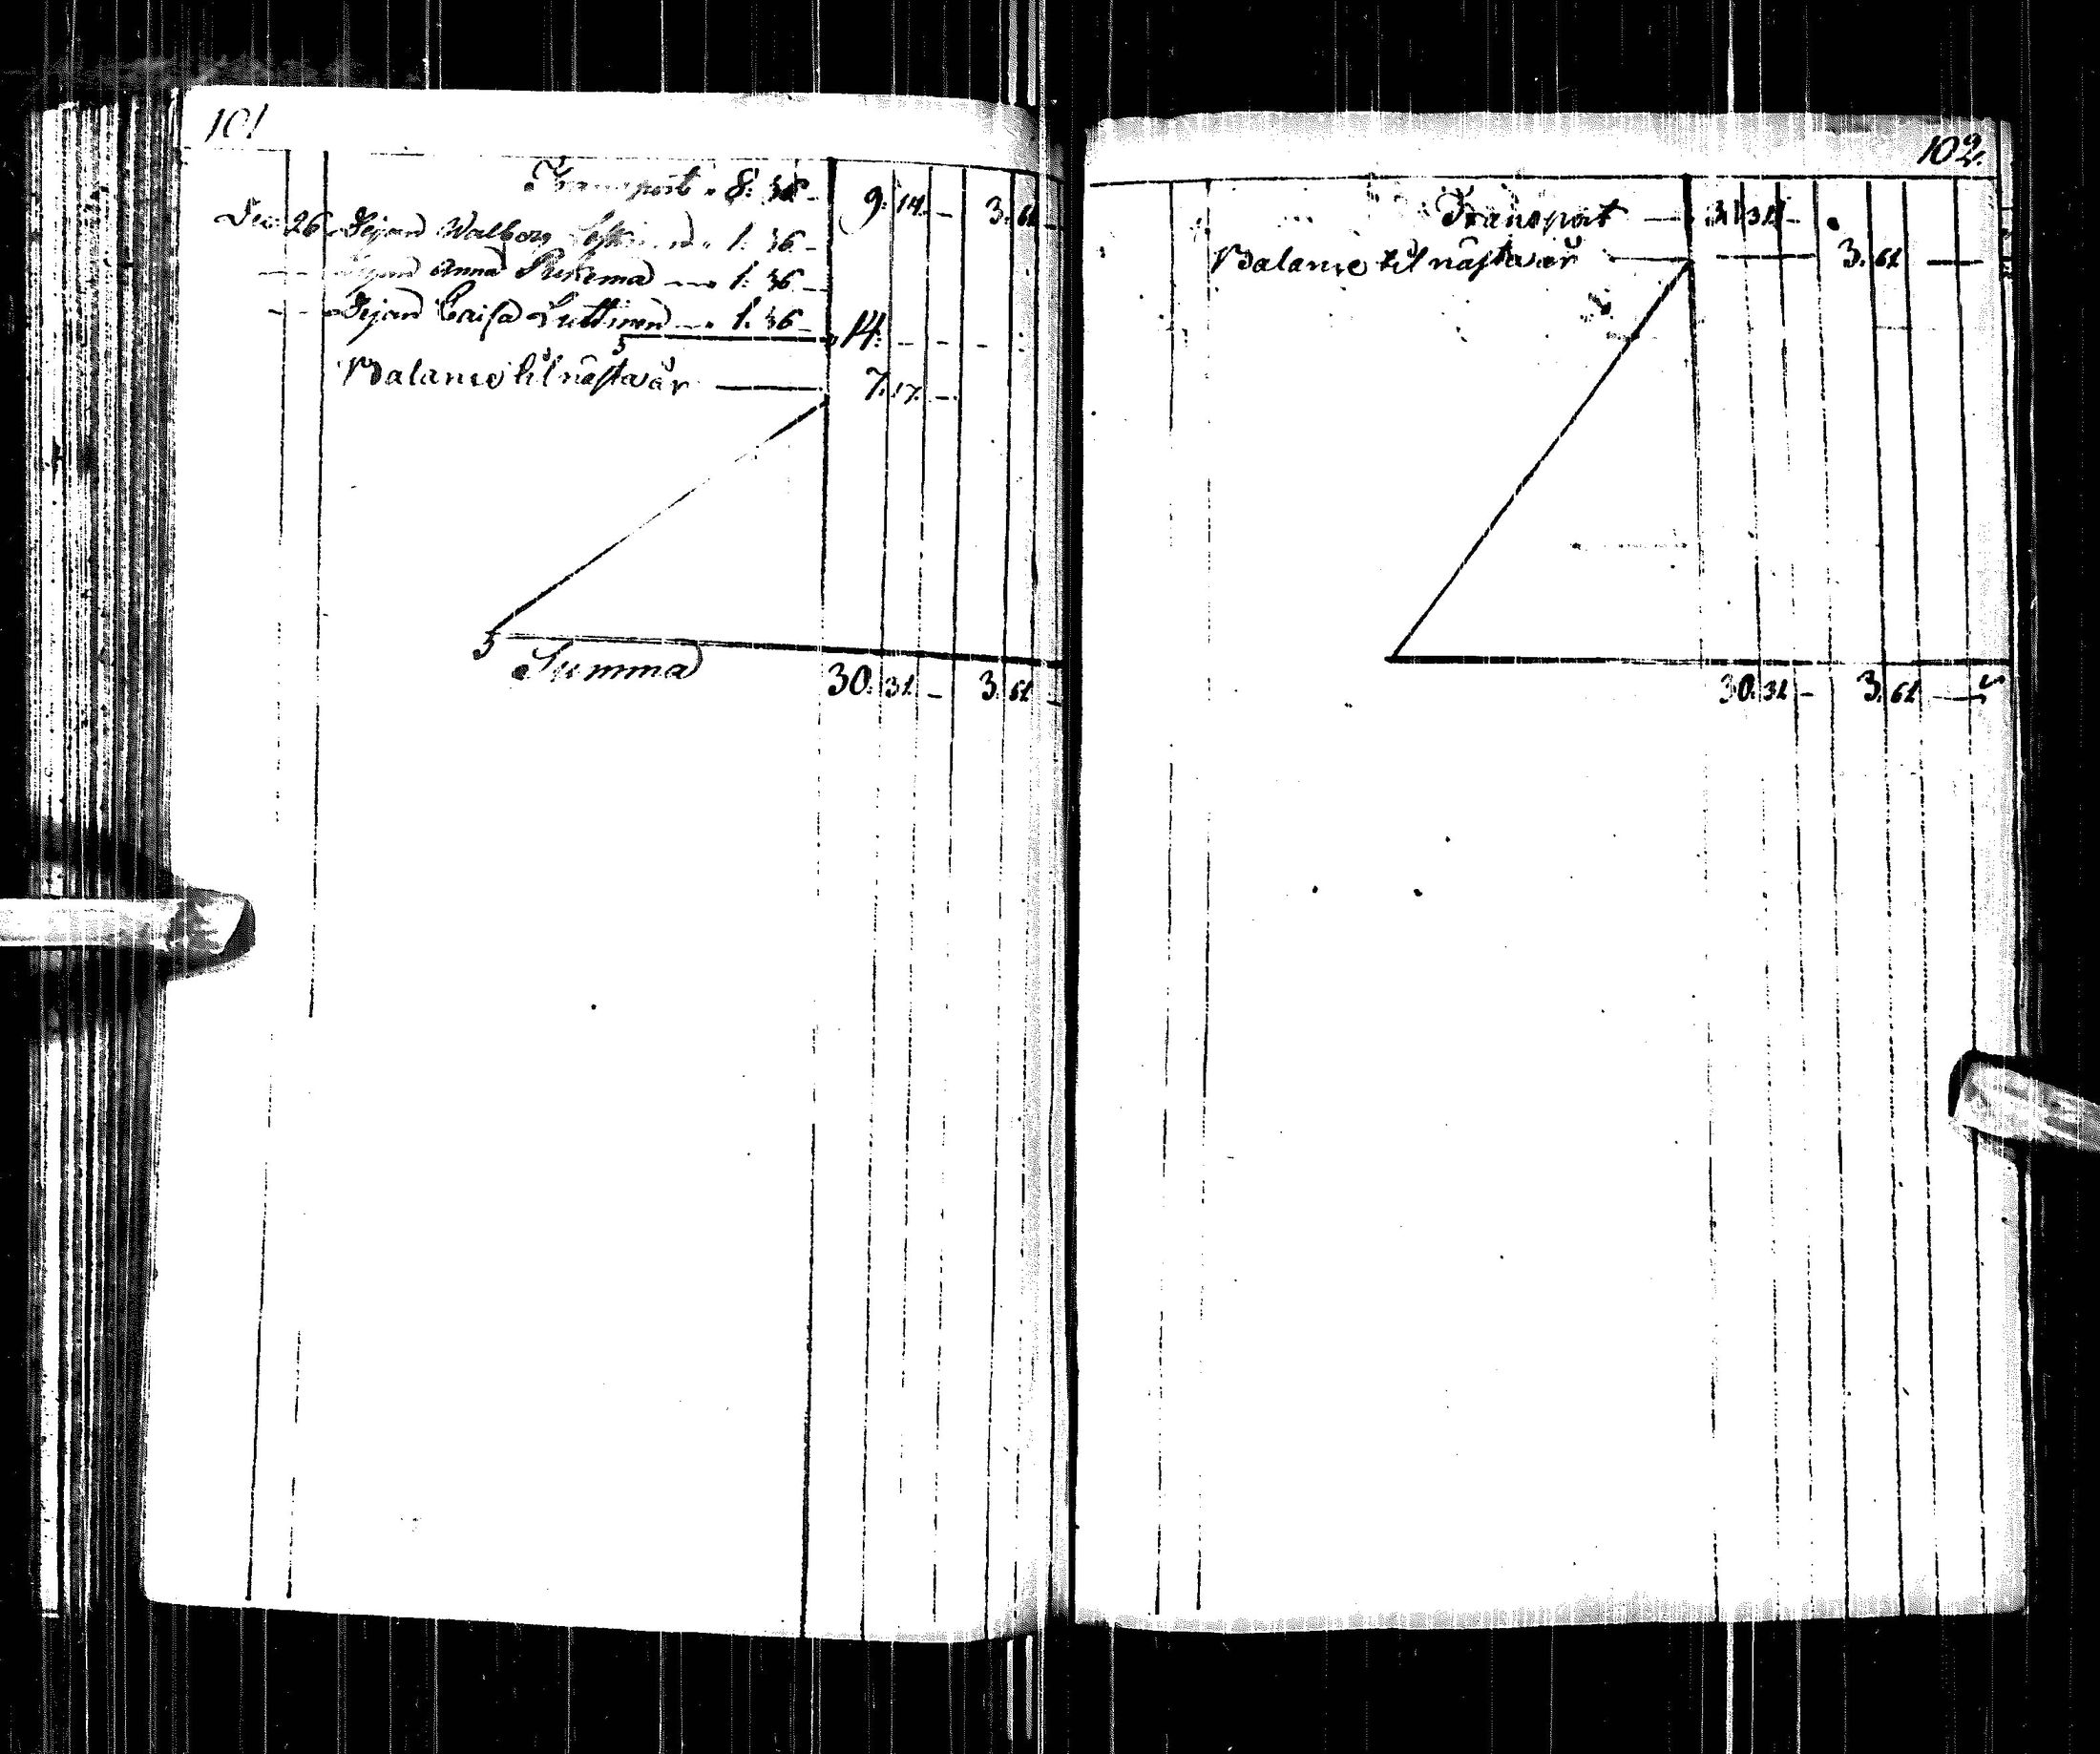 101
Transport " 8: 36 - 9. 14. - 3. 61 -
Dec: 26 Pigan Walborg 1. 36 -
Anna 1: 36 -
Pigan Caisa Luttinen " 1. 36 - 14. - - -
Balance til nästa år 7. 17. -
Summa 30. 31 - 3. 61 -
102.
Transport 31 -
Balance til nästa år 3. 61
30. 31 - 3. 61